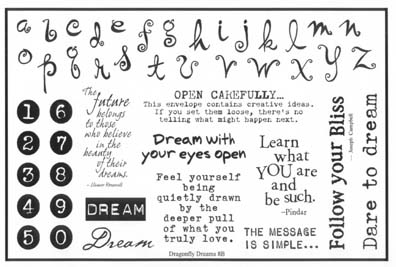 a b c d e f g h i j k l m n
o p q r s t u v w x y z
1 6
2 7
3 8
4 9
5 0
The
future
belongs
to those
who believe
in the
beauty
of their
dreams.
~ Eleanor Roosevelt
DREAM
Dream
OPEN CAREFULLY...
This envelope contains creative ideas.
If you set them loose, there's no
telling what might happen next.
Dream with
your eyes open
Feel yourself
being
quietly drawn
by the
deeper pull
of what you
truly love.
Learn
what
YOU are
and
be such.
~Pindar
THE MESSAGE
IS SIMPLE...
Follow your Bliss
~ Joseph Campbell
Dare to dream
Dragonfly Dreams 8B